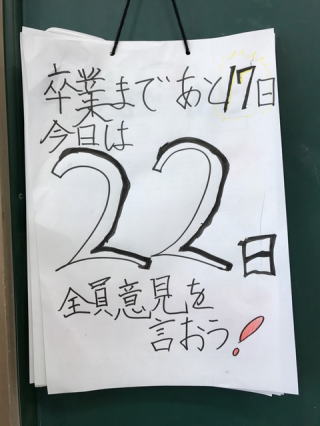 卒業まであと17日
今日は
22日
全員意見を
言おう!